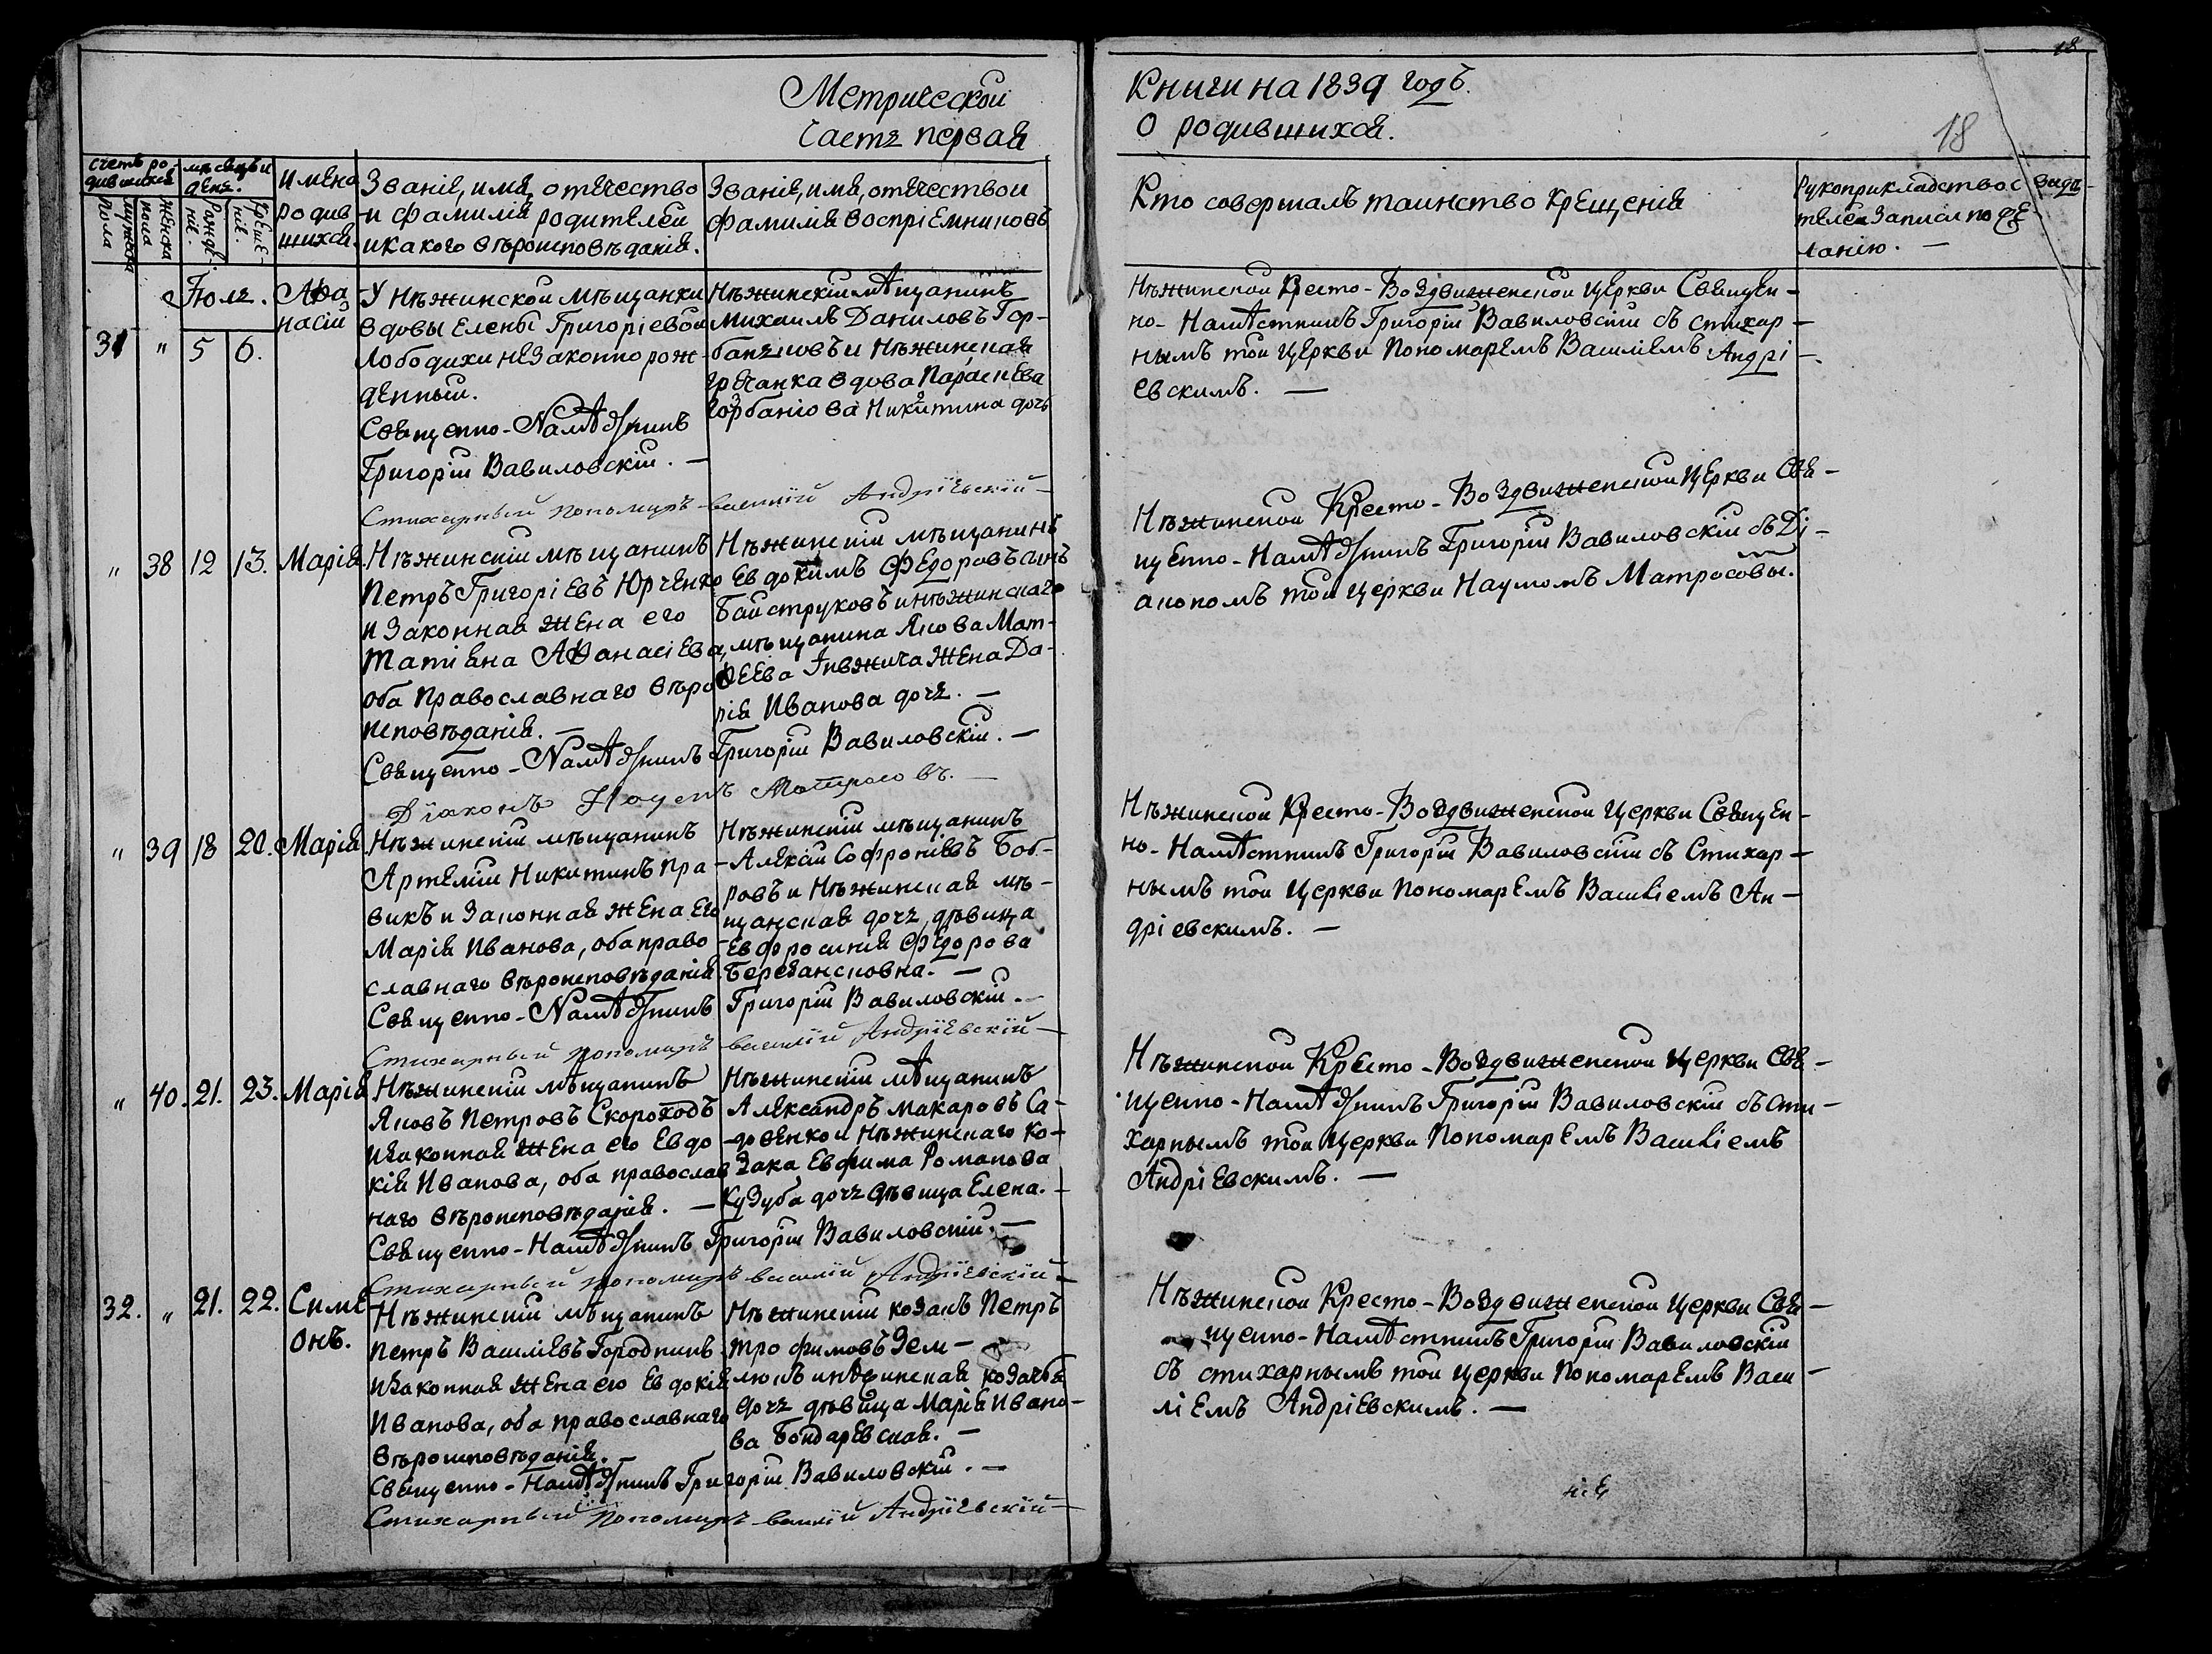 18
Метрической
Часть первая
Книги на 1839 годъ.
О родившихся.
18
счетъ ро-
дившихся
мѣсяцъ и
день.
Имена
родив
шихся.
Званіе, имя, отечество
и фамилія родителей
и какого вѣроисповѣданія.
Званіе, имя, отечество и
фамилія воспріемниковъ
Кто совершалъ таинство крещенія
Рукоприкладство свидѣ-
телей записи по же-
ланію. —
мужска
пола
женска
пола
Рожде-
ніе.
Креще-
ніе.
Іюль.
31 " 5 6.
Афа
насій
У Нѣжинской мѣщанки
вдовы Елены Григоріевой
Лободихи незаконно рож-
денный.
Священно-Намѣстникъ
Григорій Вавиловскій. —
Стихарный пономарь василій Андріевскій —
Нѣжинскій мѣщанинъ
михаилъ Даниловъ Гор-
баньловъ и Нѣжинская
гречанка вдова Параскева
Горбаніова Никитина дочь
Нѣжинской Кресто-Воздвиженской церкви Священ-
но-Намѣстникъ Григорій Вавиловскій съ стихар-
нымъ той церкви Пономаремъ Василіемъ Андрі-
евскимъ. —
" 38 12 13. Марія
Нѣжинскій мѣщанинъ
Петръ Григоріевъ Юрченко
и законная жена его
Татіяна Афанасіева,
оба Православнаго вѣро
исповѣданія. —
Священно-Намѣстникъ Григорій Вавиловскій. —
Діаконъ Наумъ Матросовъ. —
Нѣжинскій мѣщанинъ
Евдокимъ Федоровъ сынъ
Байструковъ и нѣжинскаго
мѣщанина Якова Мат-
феева Інвжича жена Да-
рія Иванова дочь. —
Нѣжинской Кресто-Воздвиженской церкви Свя-
щенно-Намѣстникъ Григорій Вавиловскій съ Ді-
акономъ той церкви Наумомъ Матросовы.
" 39 18 20. Марія
Нѣжинскій мѣщанинъ
Артемій Никитинъ Пра-
викъ и Законная жена его
Марія Иванова, оба право-
славнаго вѣроисповѣданія.
Священно-Намѣстникъ Григорій Вавиловскій. —
Стихарный пономарь василій Андріевскій —
Нѣжинскій мѣщанинъ
Алексій Софроніевъ Боб-
ровъ и Нѣжинская мѣ-
щанская дочь, дѣвица
Евфросинія Федорова
Березансковна. —
Нѣжинской Кресто-Воздвиженской церкви Священ-
но-Намѣстникъ Григорій Вавиловскій съ Стихар-
нымъ той церкви Пономаремъ Василіемъ Ан-
дріевскимъ. —
" 40. 21. 23. Марія
Нѣжинскій мѣщанинъ
Яковъ Петровъ Скороходъ
и законная жена его Евдо
кія Иванова, оба православ
наго вѣроисповѣданія. —
Священно-Намѣстникъ Григорій Вавиловскій. —
Стихарный пономарь василій Андріевскій —
Нѣжинскій мѣщанинъ
Александръ макаровъ Са-
довенко и Нѣжинскаго ко-
зака Евфима Романова
Кузуба дочь дѣвица Елена. —
Нѣжинской Кресто-Воздвиженской церкви Свя-
щенно-Намѣстникъ Григорій Вавиловскій съ сти-
харнымъ той церкви Пономаремъ Василіемъ
Андріевскимъ. —
32. " 21. 22. Симе
онъ.
Нѣжинскій мѣщанинъ
Петръ Василіевъ Городникъ
и законная жена его Евдокія
Иванова, оба православнаго
вѣроисповѣданія. —
Священно-Намѣстникъ Григорій Вавиловскій. —
Стихарный Пономарь василій Андріевскій —
Нѣжинскій козакъ Петръ
трофимовъ Зем-
люкъ и нѣжинская козачья
дочь дѣвица Марія Ивано-
ва Бондаревская. —
Нѣжинской Кресто-Воздвиженской церкви Свя-
щенно-Намѣстникъ Григорій Вавиловскій
съ стихарнымъ той церкви Пономаремъ Васи-
ліемъ Андріевскимъ. —